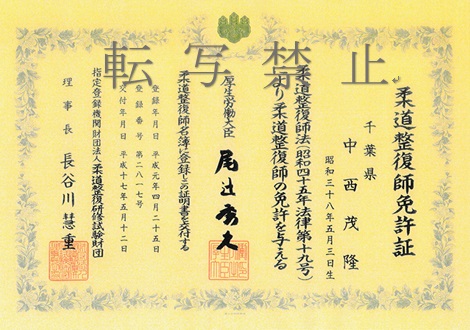 転写禁止
柔道整復師免許証
千葉県
中西茂隆
昭和三十八年五月三日生
柔道整復師法(昭和四十五年法律第十九号)
により柔道整復師の免許を与える
厚生労働大臣 尾辻秀久
柔道整復師名簿に登録しこの証明書を交付する
登録年月日 平成元年四月二十五日
登録番号 第二八一七号
交付年月日 平成十七年五月十二日
指定登録機関財団法人柔道整復研修試験財団
理事長 長谷川慧重